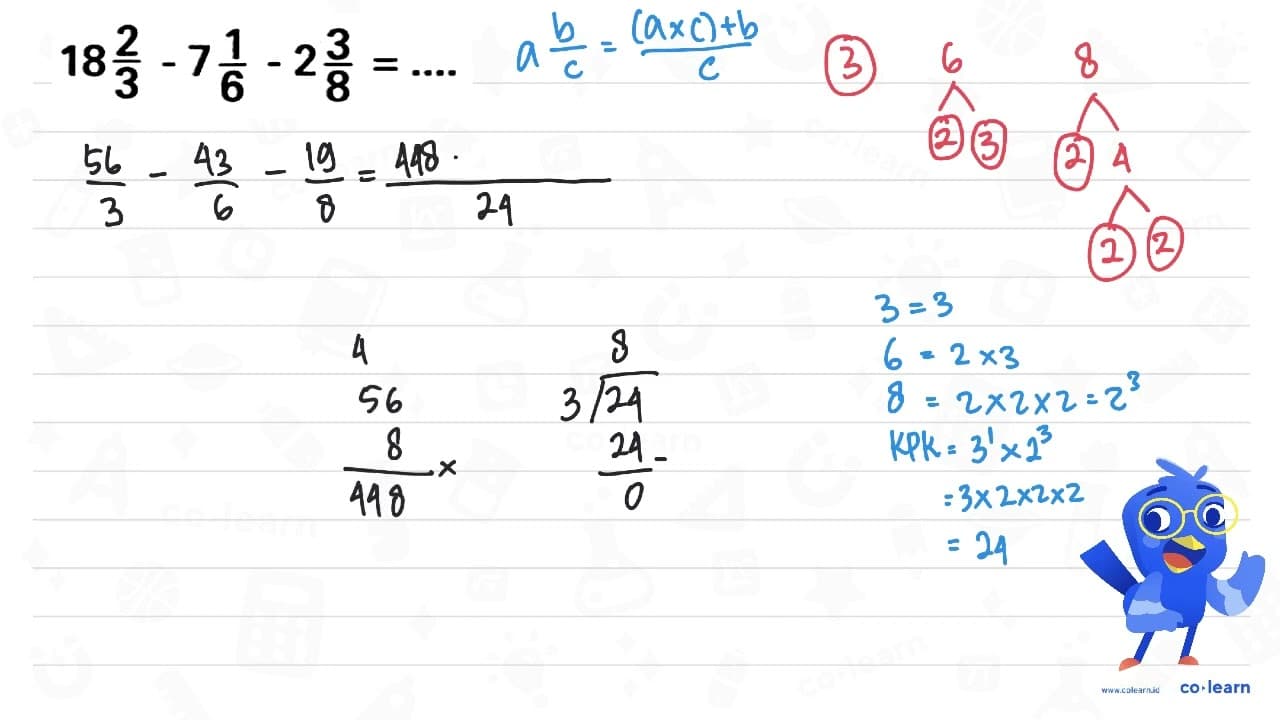 18 2/3 - 7 1/6 - 2 3/8 = ....
a b/c = (a×c)+b/c
56/3 - 43/6 - 19/8 = 448 . / 24
4
56
8 ×
448
8
3 / 24
24 -
0
3 6 8
2 3 2 4
2 2
3 = 3
6 = 2 × 3
8 = 2 × 2 × 2 = 2³
KPK = 3¹ × 2³
= 3 × 2 × 2 × 2
= 24
www.colearn.id co·learn